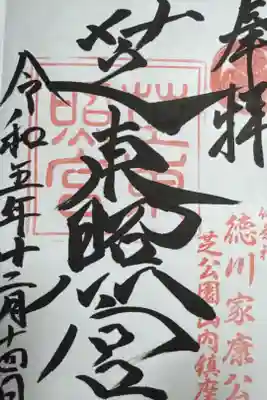 奉拝
徳川家康公
芝公園山内鎮座
芝東照宮
令和五年十二月十四日